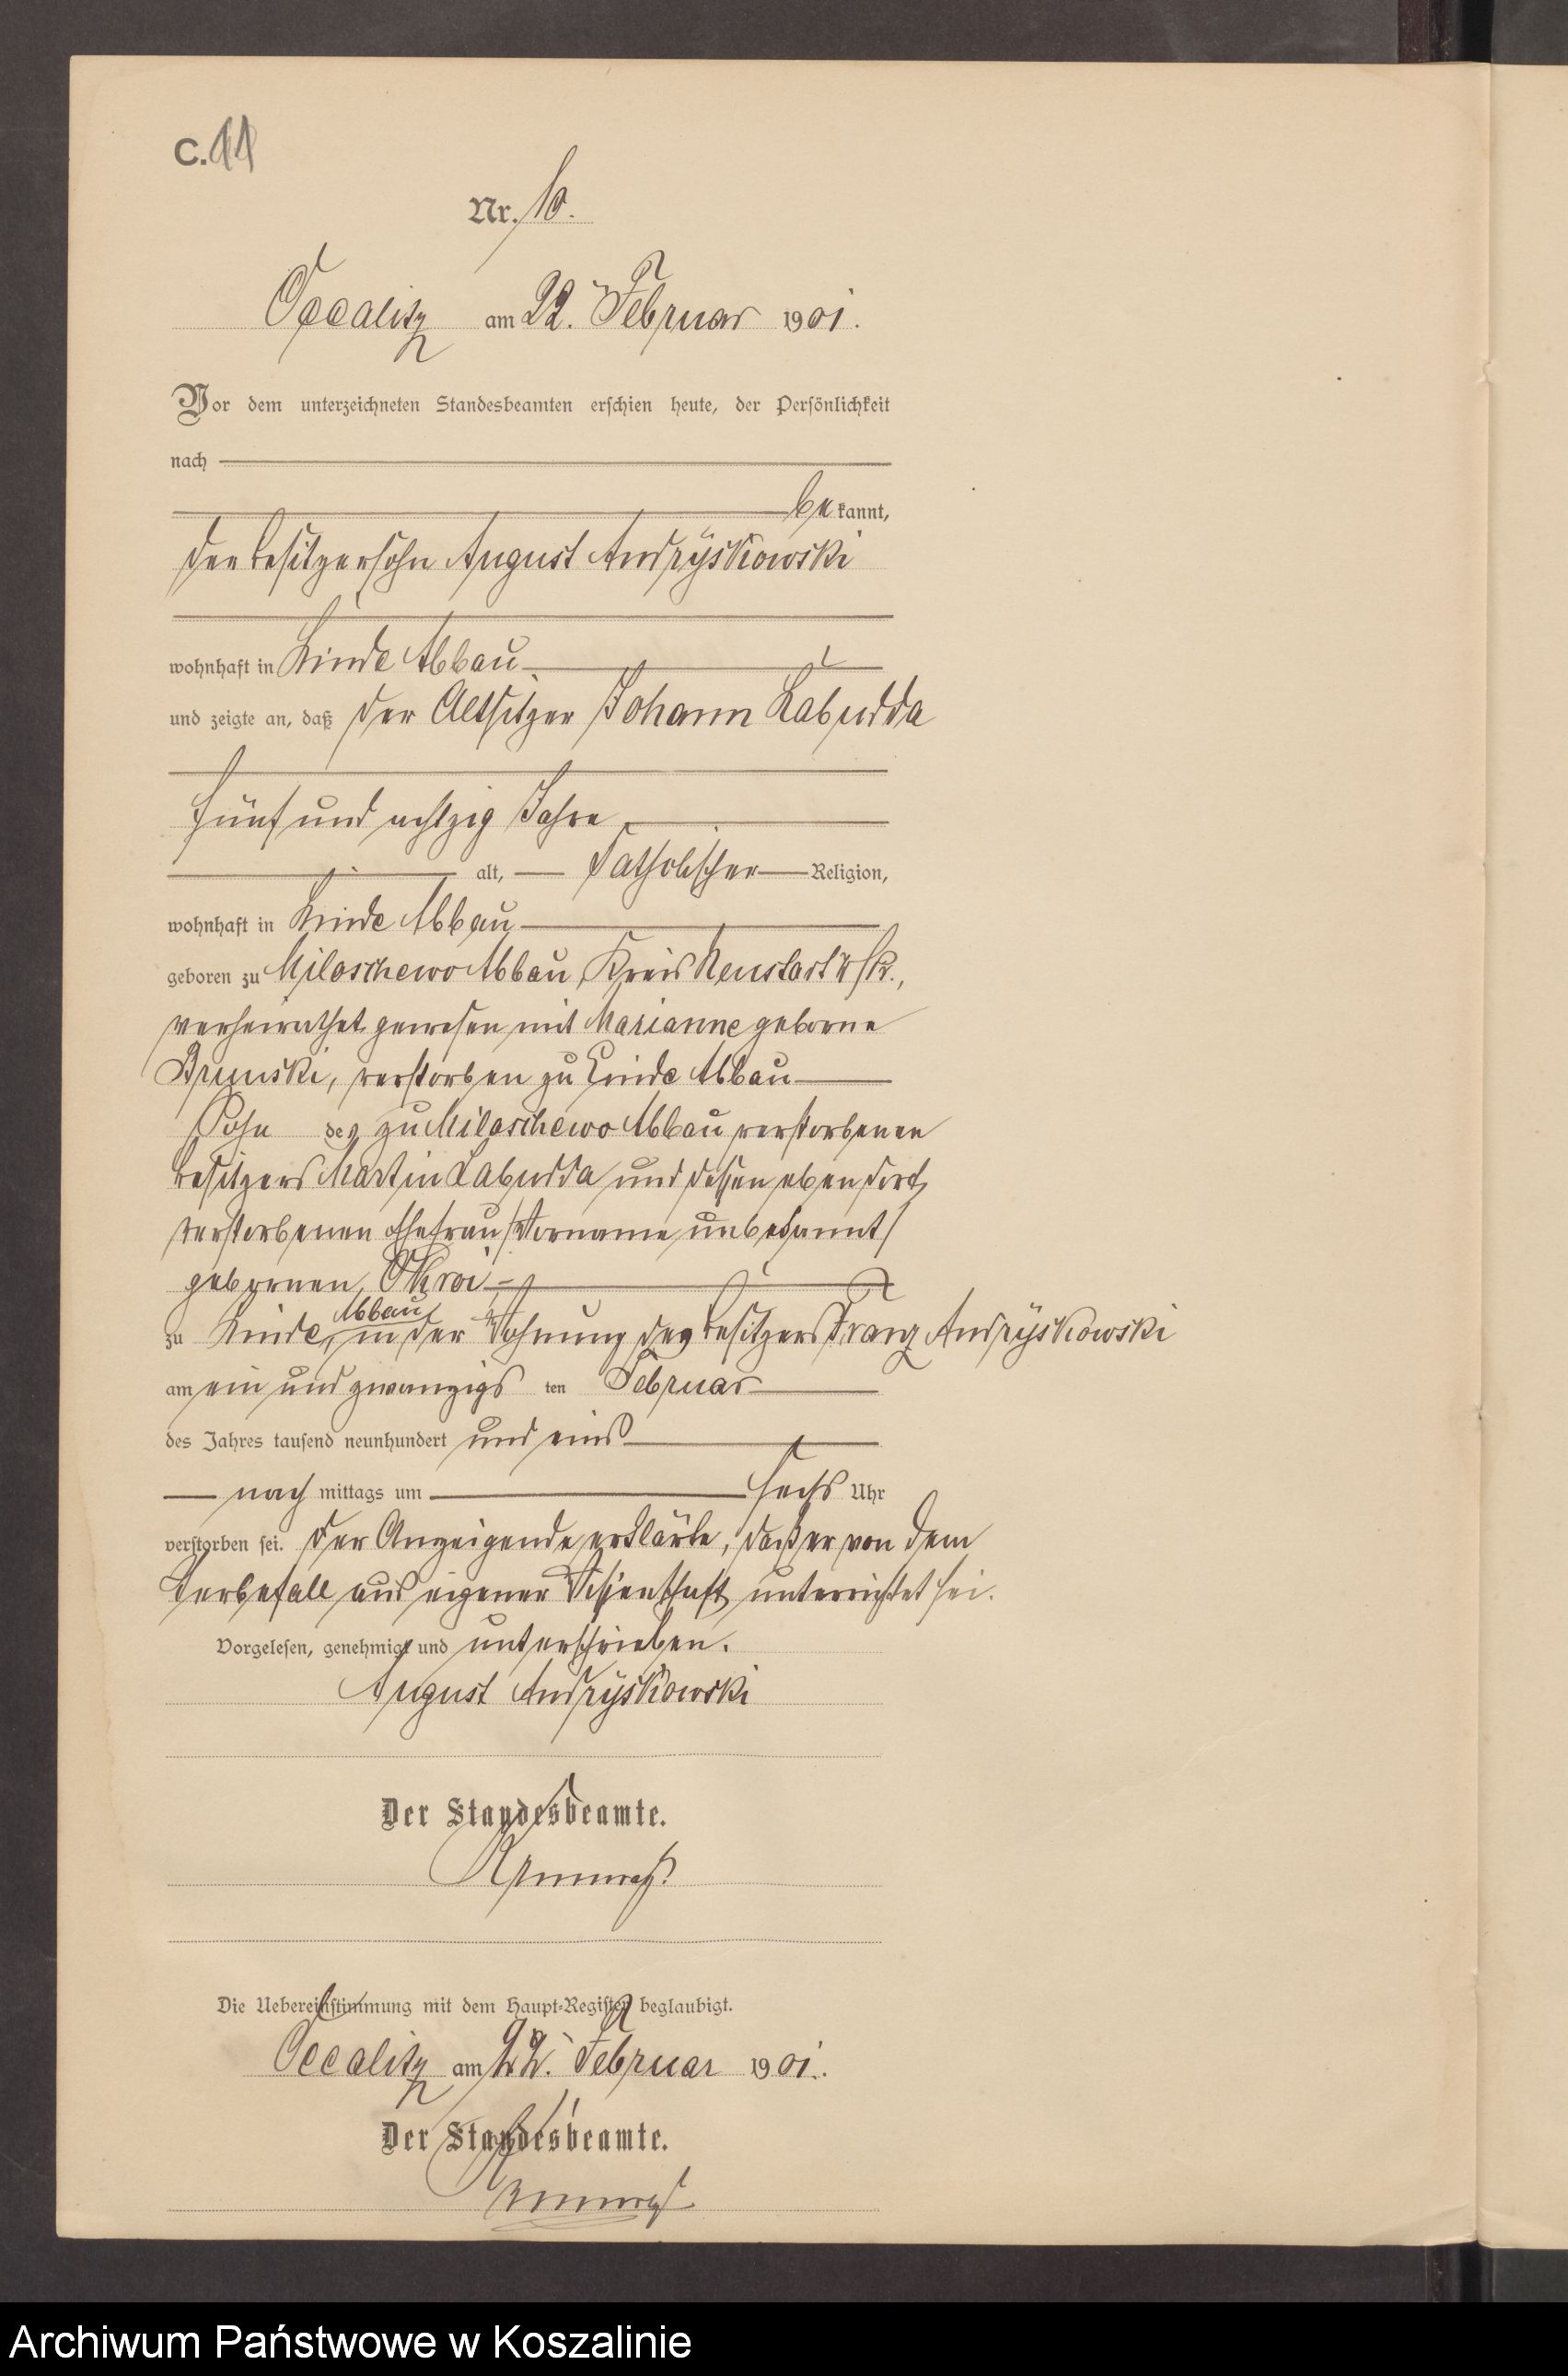 C. 11
Nr. 10.
Occalitz am 22. Februar 1901.
Vor dem unterzeichneten Standesbeamten erschien heute, der Persönlichkeit
nach
bekannt,
der Besitzersohn August Andryskowski
wohnhaft in Linde Abbau
und zeigte an, daß der Altsitzer Johann Labudda
fünf und achtzig Jahre
alt, katholischer Religion,
wohnhaft in Linde Abbau
geboren zu Miloschewo Abbau, Kreis Neustadt W/Pr.,
verheirathet gewesen mit Marianne geborne
verstorben zu Linde Abbau
Sohn des zu Miloschewo Abbau verstorbenen
Besitzers Martin Labudda und dessen ebendort
verstorbenen Ehefrau /Vorname unbekannt/
gebornen Okroi
zu Linde Abbau, in der Wohnung des Besitzers Franz Andryskowski
am ein und zwanzigs ten Februar
des Jahres tausend neunhundert und eins
nach mittags um sechs Uhr
verstorben sei. Der Anzeigende erklärte, daß er von dem
Sterbefall aus eigener Wissenschaft unterrichtet sei.
Vorgelesen, genehmigt und unterschrieben.
August Andryskowski
Der Standesbeamte.
Die Uebereinstimmung mit dem Haupt-Register beglaubigt.
Occalitz am 22. Februar 1901.
Der Standesbeamte.
Archiwum Państwowe w Koszalinie